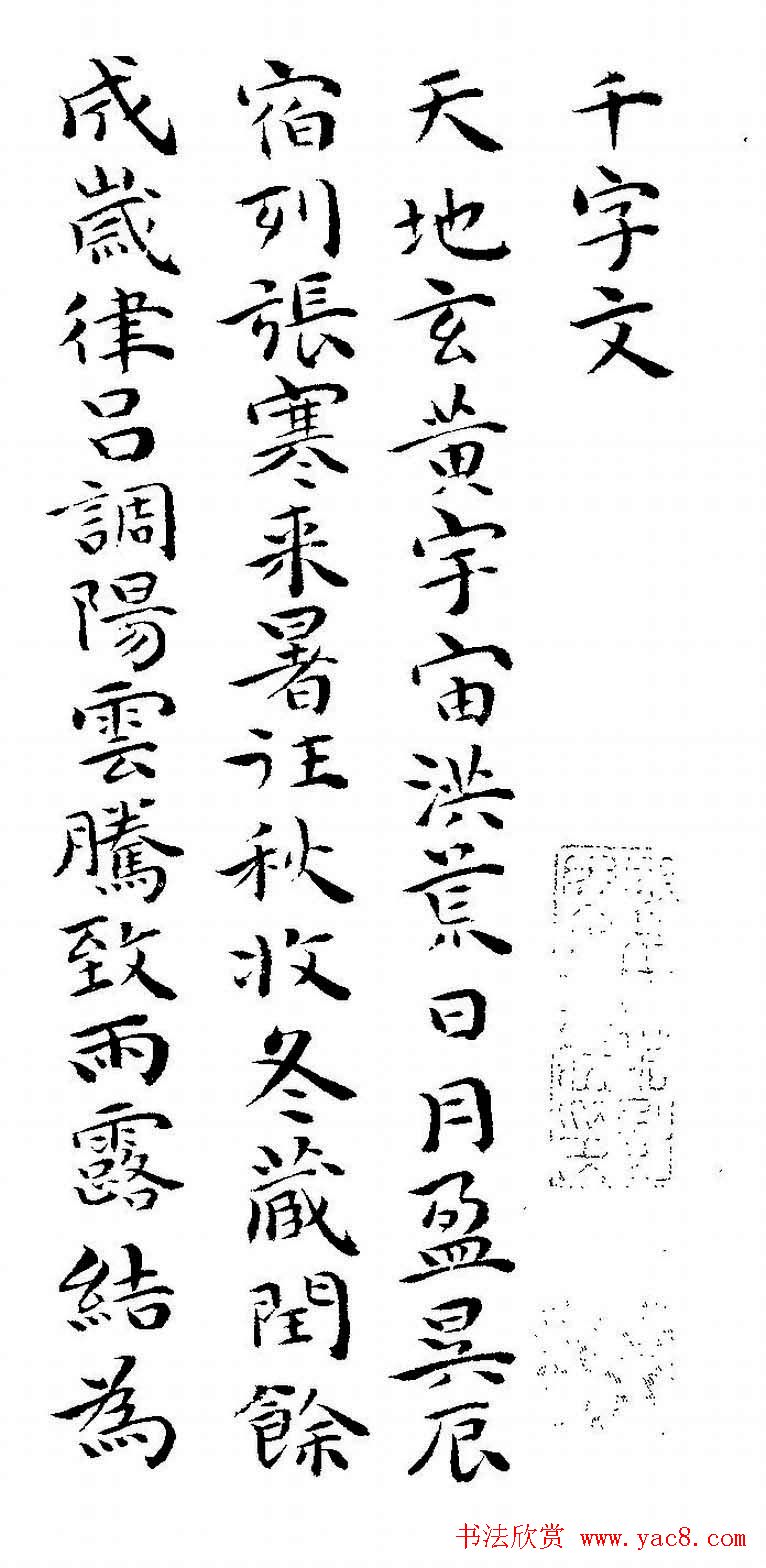 千字文
天地玄黄宇宙洪荒日月盈昃辰
宿列張寒来暑往秋收冬蔵閏餘
成歲律呂調陽雲騰致雨露結為
书法欣赏 www.yac8.com